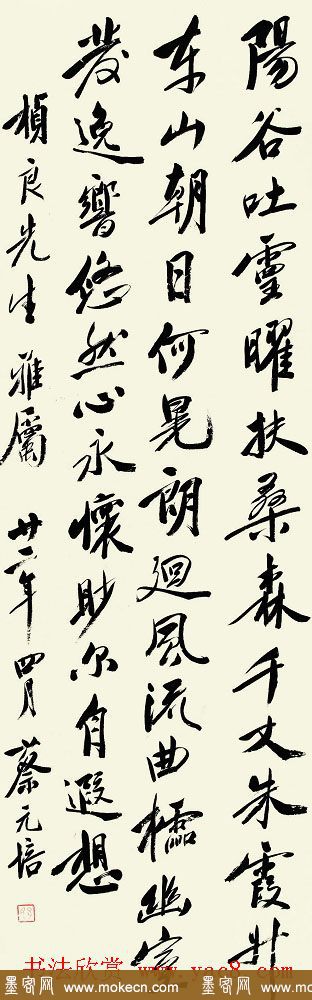 陽谷吐靈曜扶桑森千丈朱霞升
东山朝日何晃朗迴風流曲櫺幽室
發逸響悠然心永懷眇尔自遐想
楨良先生雅屬 廿二年四月 蔡元培
书法欣赏 www.yac8.com
墨客网 www.mokecn.com 墨客网 www.mokecn.com